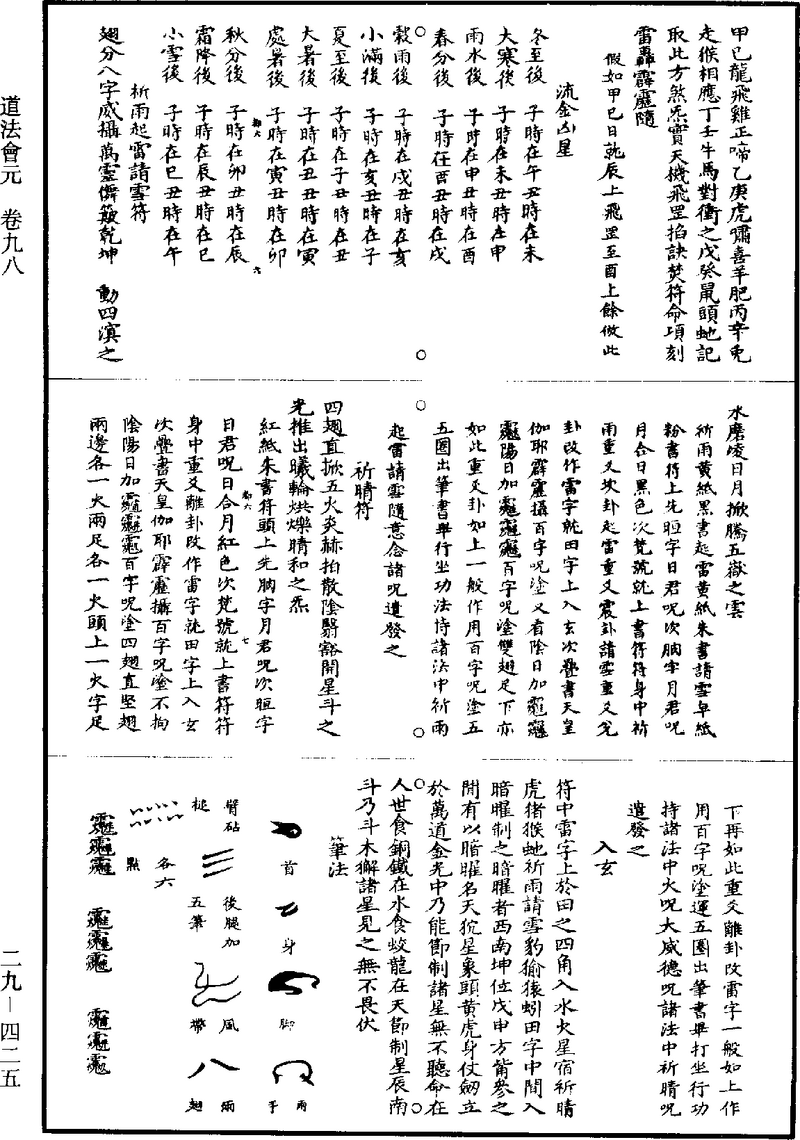 道法會元　卷九八
二九－四二五
甲己龍飛雞正啼乙庚虎嘯喜羊肥丙辛兔
走猴相應丁壬牛馬對衝之戊癸鼠頭虵記
取此方煞炁實天機飛罡掐訣焚符命項刻
雷轟霹靂隨
假如甲己日就辰上飛罡至酉上餘倣此
流金凶星
冬至後　子時在午丑時在未
大寒後　子時在未丑時在申
雨水後　子時在申丑時在酉
春分後　子時在酉丑時在戌
穀雨後　子時在戌丑時在亥
小滿後　子時在亥丑時在子
夏至後　子時在子丑時在丑
大暑後　子時在丑丑時在寅
處暑後　子時在寅丑時在卯
秋分後　子時在卯丑時在辰
霜降後　子時在辰丑時在巳
小雪後　子時在巳丑時在午
祈雨起雷請雪符
翅分八字威攝萬靈儛簸乾坤　動四溟之
水磨凌日月掀騰五嶽之雲
祈雨黄紙黑書起雷黄紙朱書請雪皁紙
粉書符上先晅字日君呪次朒字月君呪
月合日黑色次梵號就上書符符身中祈
雨重爻坎卦起雷重爻震卦請雪重爻兊
卦改作雷字就田字上入玄次疊書天皇
伽耶霹靂攝百字呪塗又看陰日加
陽日加　百字呪塗雙翅足下亦
如此重爻卦如上一般作用百字呪塗五
五圈出筆書畢行坐功法恃諸法中祈雨
起雷請雪隨意念諸呪遣發之
祈晴符
四翅直掀五火炎赫拍散陰翳豁開星斗之
光推出曦輪烘爍晴和之炁
紅紙朱書符頭上先朒字月君呪次晅字
日君呪日合月紅色次梵號就上書符符
身中重爻離卦改作雷字就田字上入玄
次疊書天皇伽耶霹靂攝百字呪塗不拘
陰陽日加　百字呪塗四翅直竪翅
兩邊各一火兩足各一火頭上一火字足
下再如此重爻離卦改雷字一般如上作
用百字呪塗運五圈出筆書畢打坐行功
持諸法中火呪大威德呪諸法中祈晴呪
遣發之
入玄
符中雷字上於田之四角入水火星宿祈晴
虎猪猴虵祈雨請雪豹㺄猿蚓田字中間入
暗曜制之暗曜者西南坤位戊申方觜參之
間有以暗曜名天狁星象頭黄虎身仗劒立
於萬道金光中乃能節制諸星無不聽命在
人世食銅鐵在水食蛟龍在天節制星辰南
斗乃斗木獬諸星見之無不畏伏
筆法
首
身
脚
兩手
臂砧
後腿加五筆
風帶
兩翅
槌
各六點